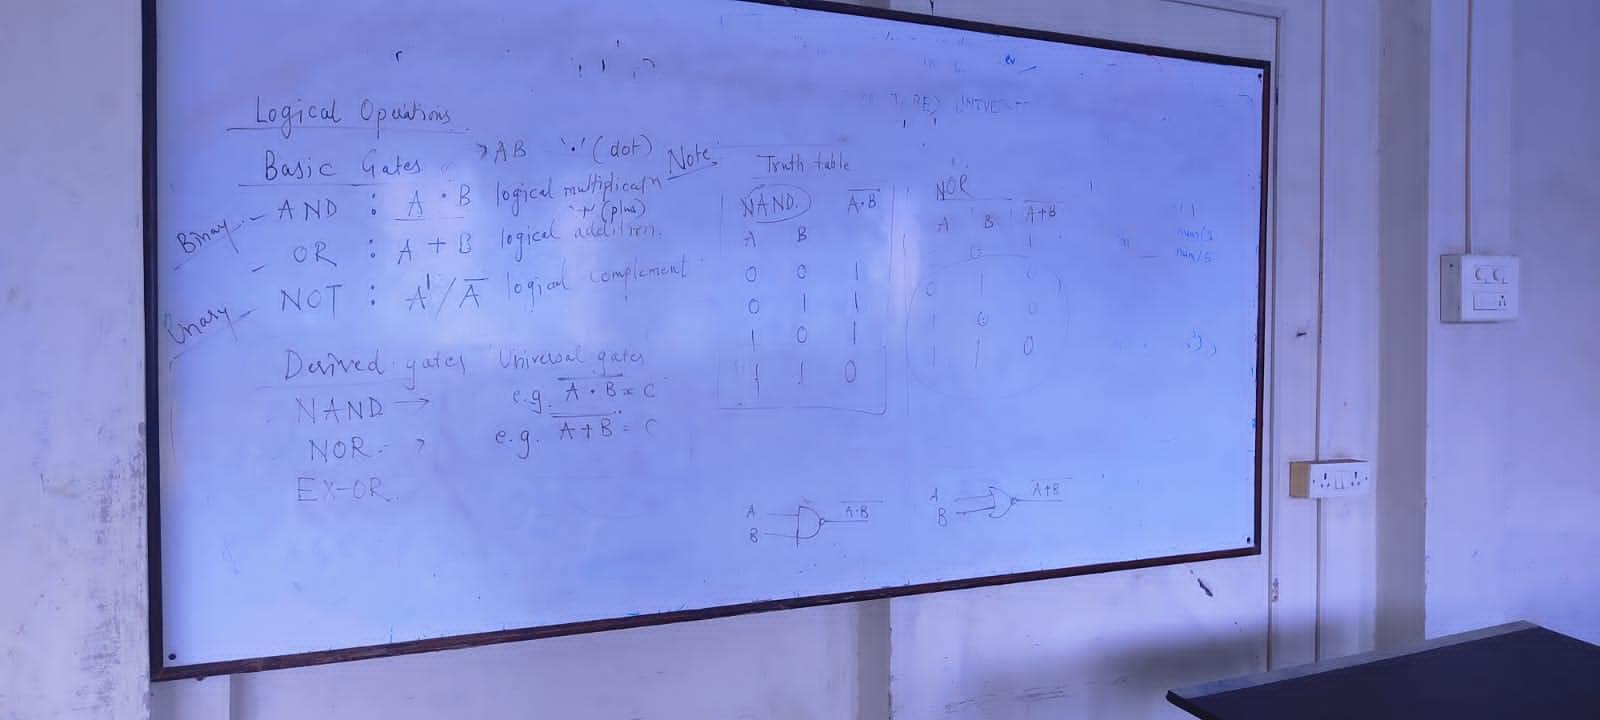 Logical Operations
Basic Gates → AB '·' (dot)
Binary AND : A · B logical multiplicatn
'+' (plus)
OR : A + B logical addition.
Unary NOT : A'/A̅ logical complement
Derived gates Universal gates
NAND → e.g. A̅ ̅·̅ ̅B̅ = C
NOR → e.g. A̅ ̅+̅ ̅B̅ = C
EX-OR.
Note: Truth table
NAND. A̅·̅B̅
A B
0 0 1
0 1 1
1 0 1
1 1 0
NOR
A B A̅+̅B̅
0 1
0 1 0
1 0 0
1 1 0
A
B
A̅·̅B̅
A
B
A̅+̅B̅